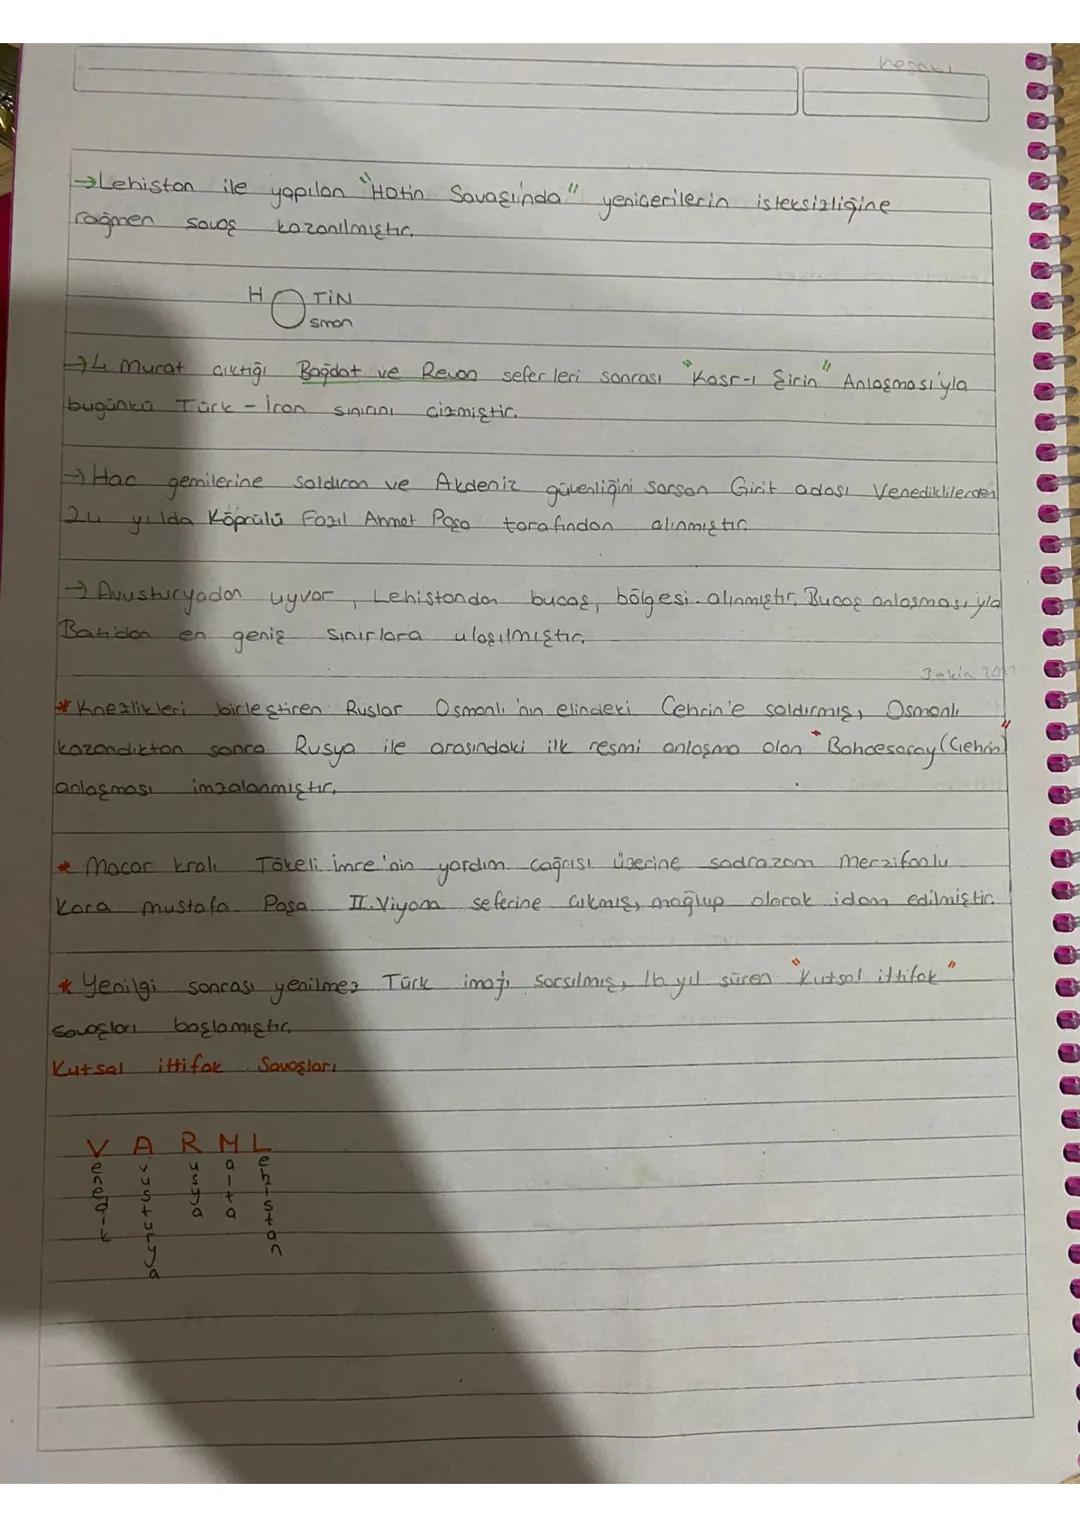 →Lehistan ile yapılan "Hotin Savaşında" yeniçerilerin isteksizliğine
rağmen savaş kazanılmıştır.
H O TİN
sman
→4 Murat çıktığı Bağdat ve Revan seferleri sonrası "Kasr-ı Şirin" Anlaşması'yla
bugünkü Türk - İran sınırını çizmiştir.
→ Hac gemilerine saldıran ve Akdeniz güvenliğini sarsan Girit adası Venediklilerden
24 yılda Köprülü Fazıl Ahmet Paşa tarafından alınmıştır.
→ Avusturyadan uyvar, Lehistandan bucaş, bölgesi alınmıştır. Bucaş anlaşması yla
Batıdan en geniş sınırlara ulaşılmıştır.
* Knezlikleri birleştiren Ruslar Osmanlı 'nın elindeki Çehrin'e saldırmış, Osmanlı
kazandıktan sonra Rusya ile arasındaki ilk resmi anlaşma olan "Bahçesaray (Çehrin)"
anlaşması imzalanmıştır.
* Macar kralı Tökeli İmre'nin yardım çağrısı üzerine sadrazam Merzifonlu
Kara Mustafa Paşa II. Viyana seferine çıkmış, mağlup olarak idam edilmiştir.
* Yenilgi sonrası yenilmez Türk imajı sarsılmış, 16 yıl süren "Kutsal ittifak"
savaşları başlamıştır.
Kutsal ittifak Savaşları
V A R M L
enedik vusturya usya alta ehistan